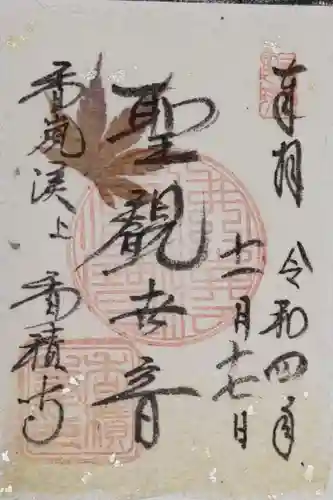 奉拝 令和四年
十一月十七日
聖観世音
香嵐渓上 香積寺